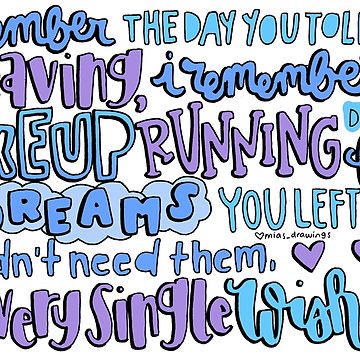 ember THE DAY YOU TOL
aving, i remembe
KEUP RUNNING D
DREAMS YOU LEFT
♡mias_drawings
dn't need them.
very single wish